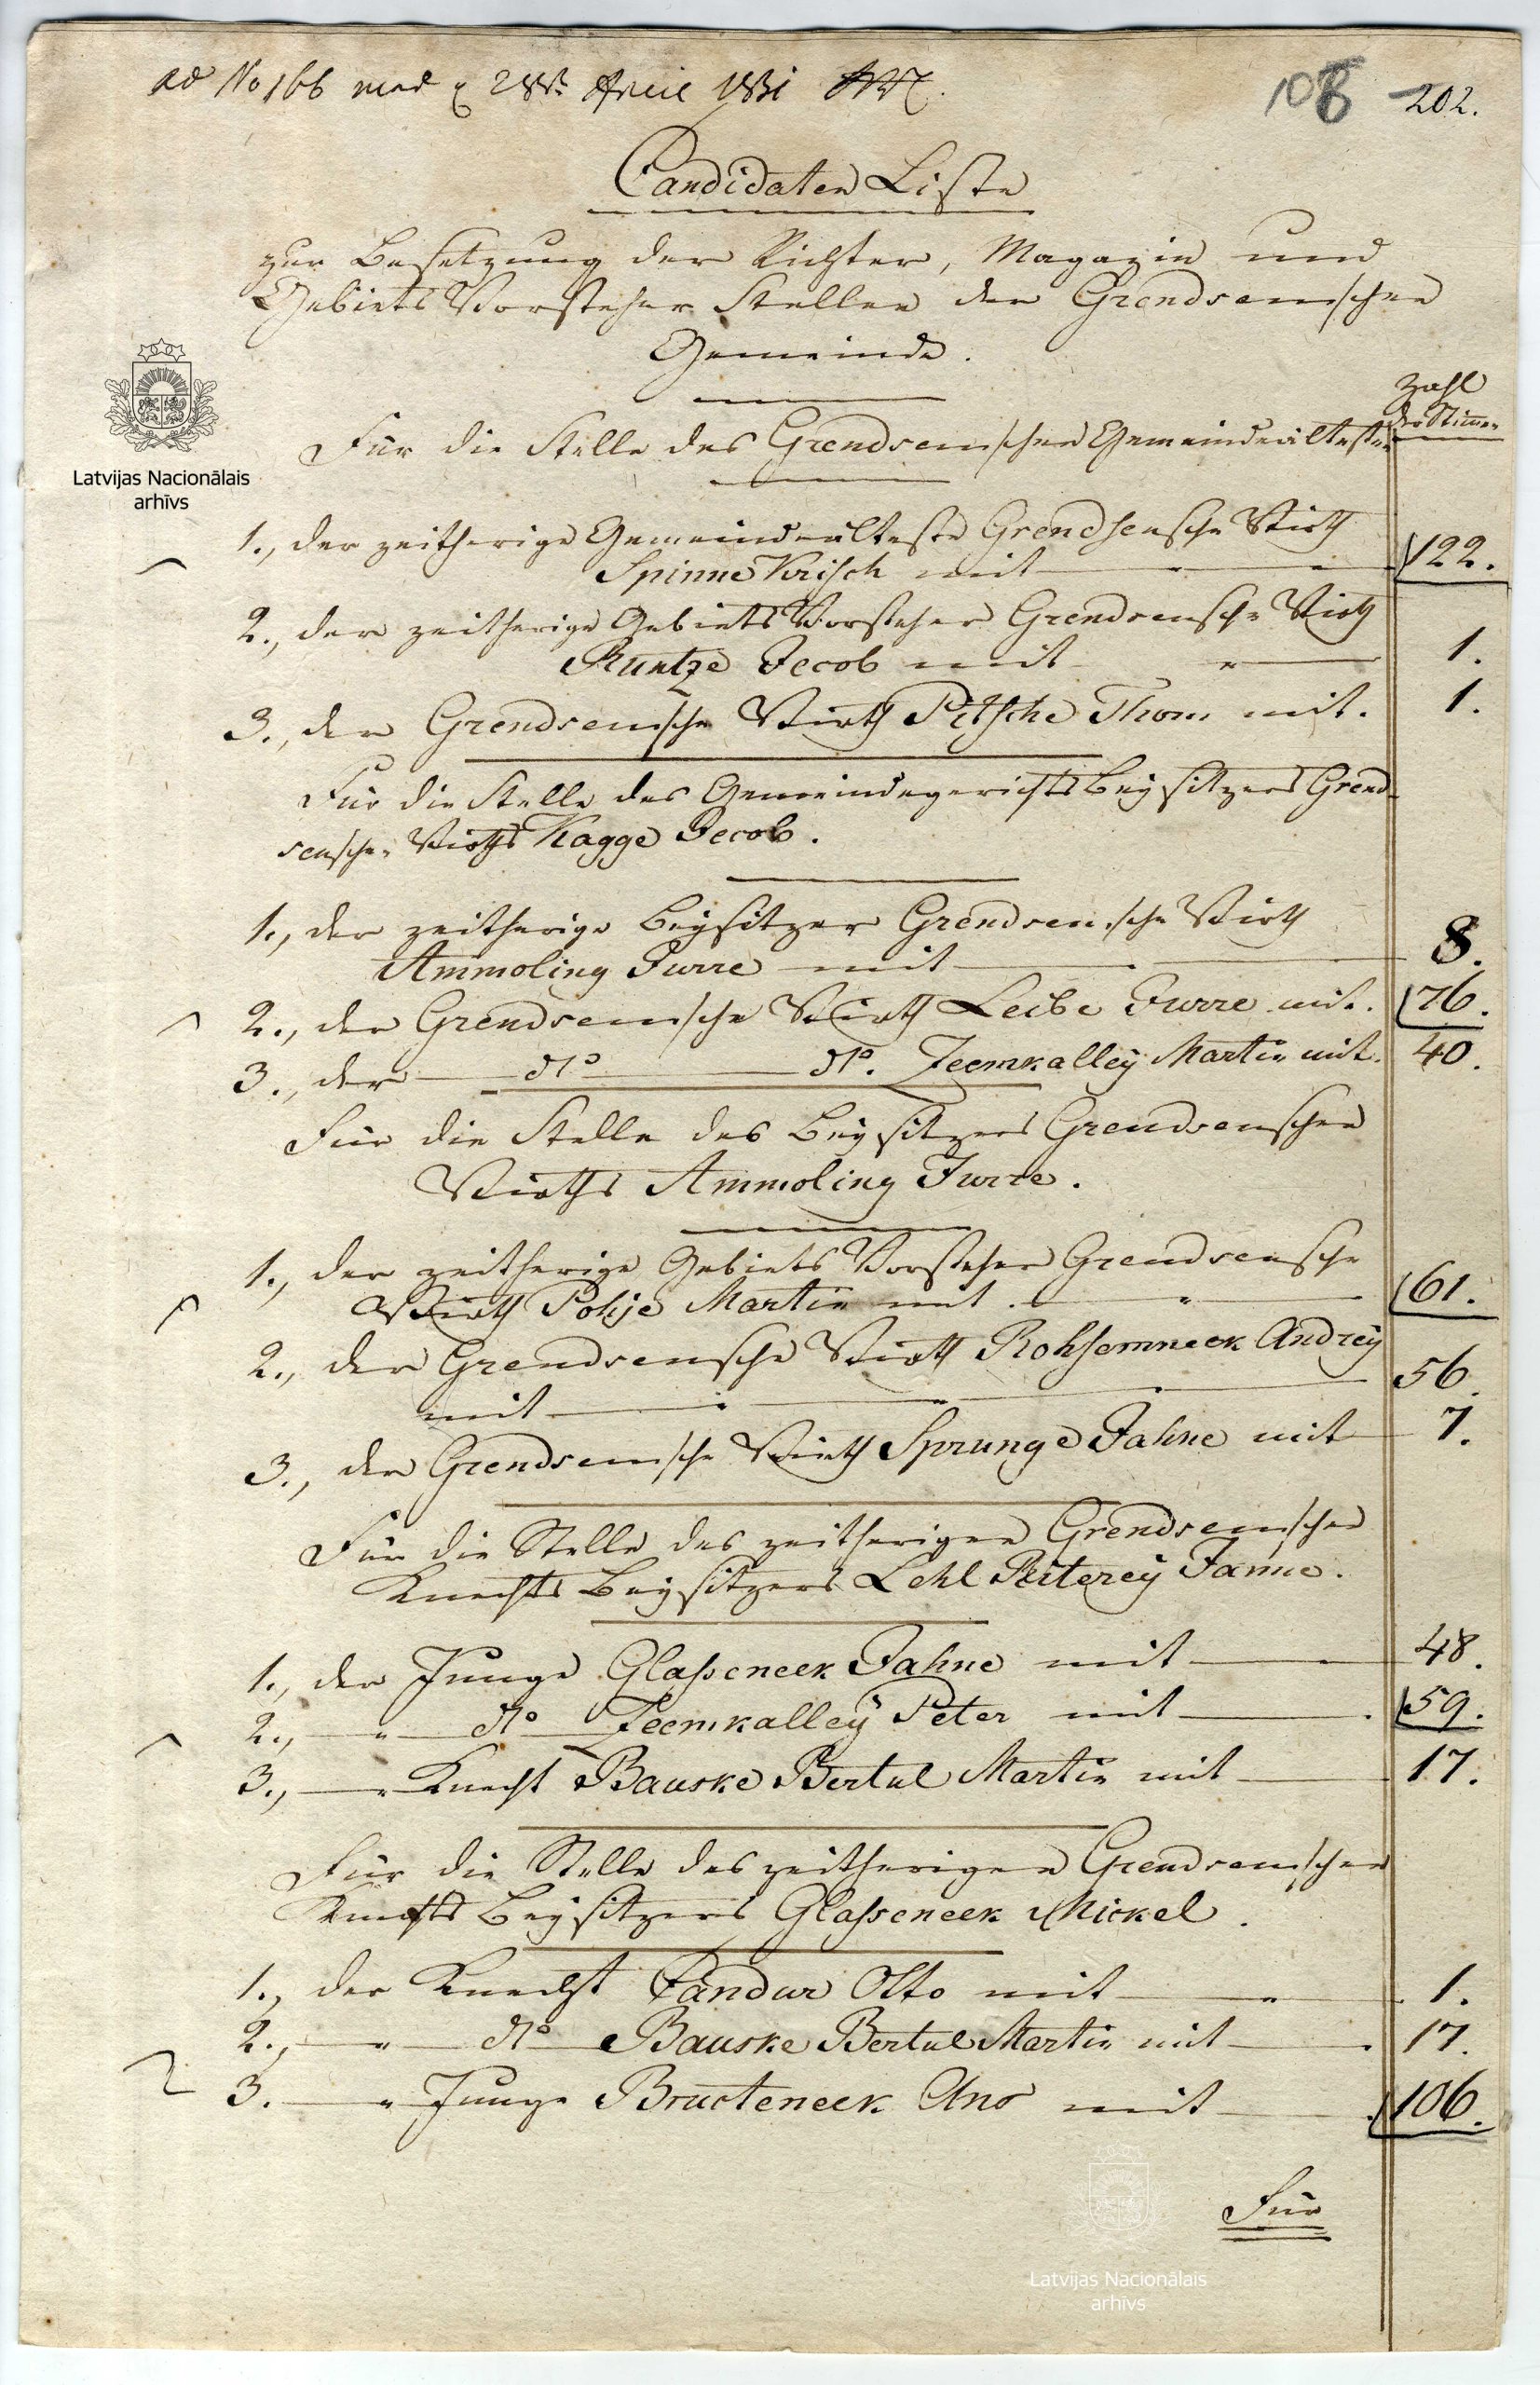 ad No 166 prod d 28st April 1831
108 202.
Candidaten Liste
zur Besetzung der Richter, Magazin und
Gebiets Vorsteher Stellen der Grendsenschen
Gemeinde.
Zahl
der Stimmen
Für die Stelle des Grendsenschen Gemeindeältesten
Latvijas Nacionālais
arhīvs
1., der zeitherige Gemeindeälteste Grendsensche Wirth
Spinne Krisch mit 122.
2., der zeitherige Gebiets Vorsteher Grendsensche Wirth
Runtze Jecob mit 1.
3., der Grendsensche Wirth Pitsche Thom mit. 1.
Für die Stelle des Gemeindegerichts Beysitzers Grend-
senschen Wirths Kagge Jecob.
1., der zeitherige Beysitzer Grendsensche Wirth
Ammoling Jurre mit 8.
2., der Grendsensche Wirth Leibe Jurre mit. 76.
3., der dto dto. Zeemkalley Martin mit. 40.
Für die Stelle des Beysitzers Grendsenschen
Wirths Ammoling Jurre.
1., der zeitherige Gebiets Vorsteher Grendsensche
Wirth Pohje Martin mit. 61.
2., der Grendsensche Wirth Rohsemneek Andrey
mit 56.
3., der Grendsensche Wirth Sprunge Jahne mit 7.
Für die Stelle des zeitherigen Grendsenschen
Knechts Beysitzers Lehl Peterey Janne.
1., der Junge Glasseneek Jahne mit 48.
2., " dto Zeemkalley Peter mit 59.
3., " Knecht Bauske Bertul Martin mit 17.
Für die Stelle des zeitherigen Grendsenschen
Knechts Beysitzers Glasseneek Mickel.
1., der Knecht Pandur Otto mit 1.
2., " dto Bauske Bertul Martin mit 17.
3. " Junge Bructeneek Ans mit 106.
Für
Latvijas Nacionālais
arhīvs